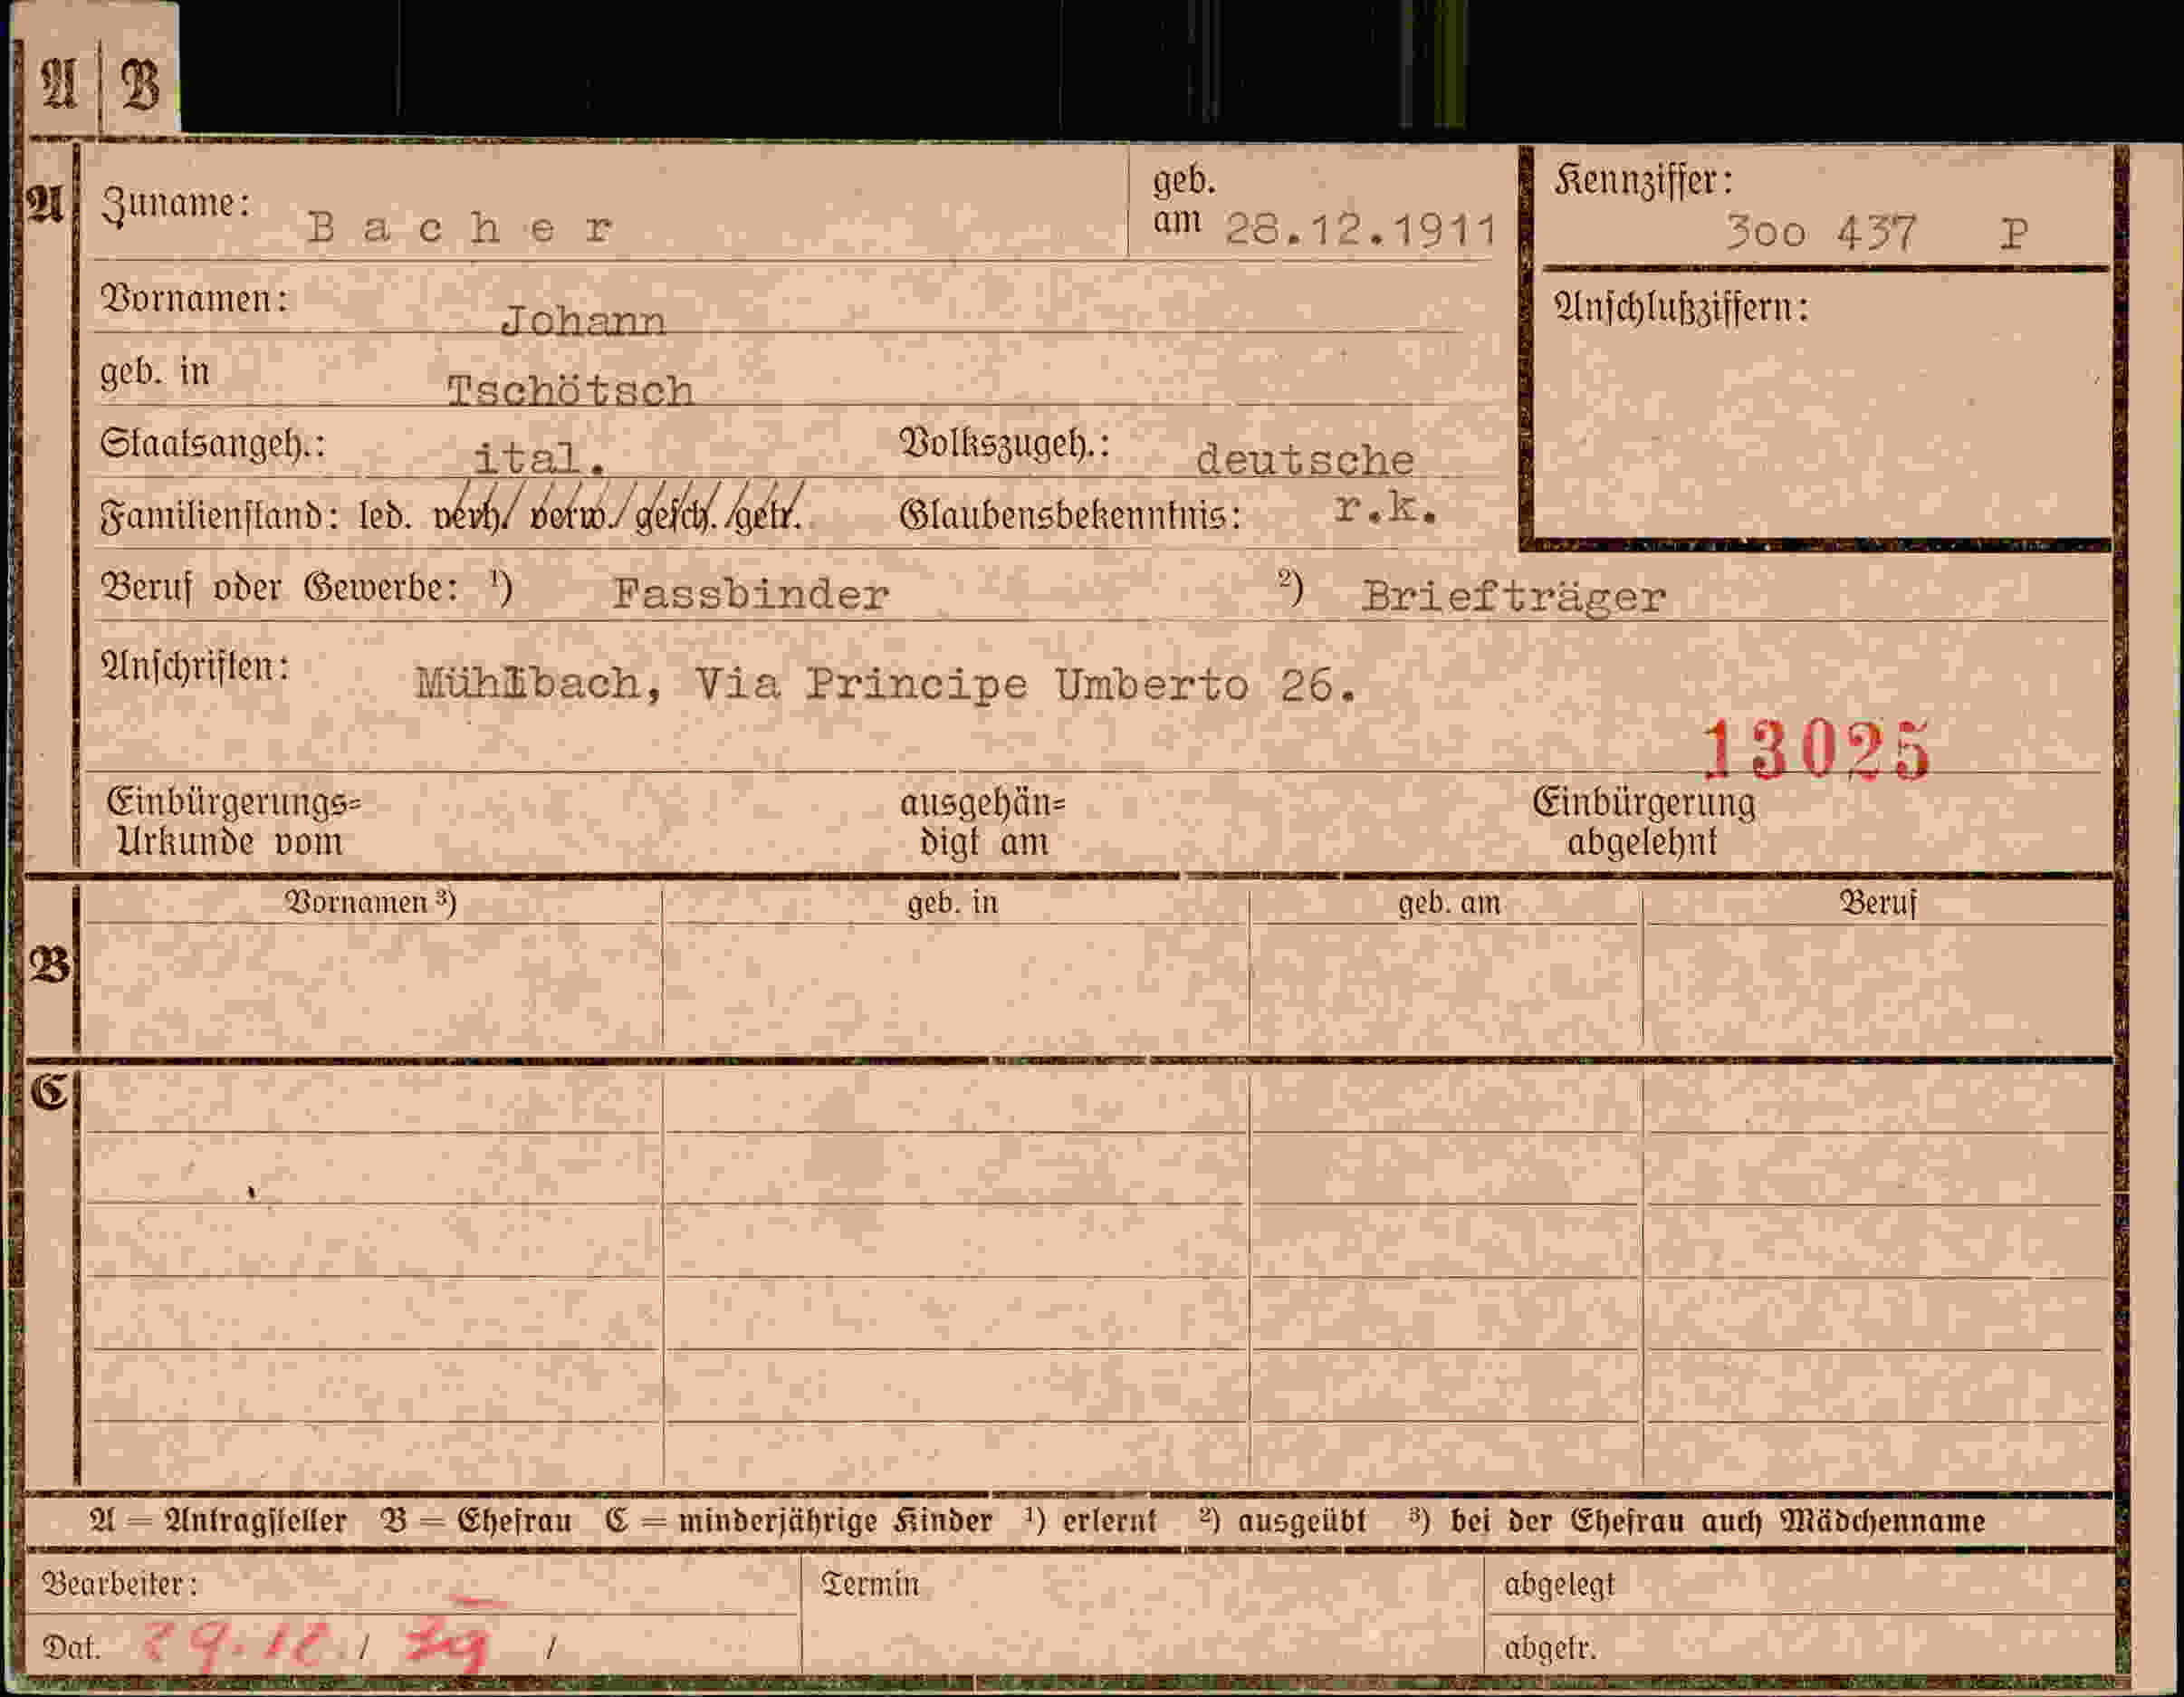 A B
A Zuname: Bacher geb. am 28.12.1911 Kennziffer: 3oo 437 P
Vornamen: Johann Anschlußziffern:
geb. in Tschötsch
Staatsangeh.: ital. Volkszugeh.: deutsche
Familienstand: led. verh./ verw./ gesch./ getr. Glaubensbekenntnis: r.k.
Beruf oder Gewerbe: ¹) Fassbinder ²) Briefträger
Anschriften: Mühlbach, Via Principe Umberto 26.
13025
Einbürgerungs= ausgehän= Einbürgerung
Urkunde vom digt am abgelehnt
Vornamen ³) geb. in geb. am Beruf
B
C
A = Antragsteller B = Ehefrau C = minderjährige Kinder ¹) erlernt ²) ausgeübt ³) bei der Ehefrau auch Mädchenname
Bearbeiter: Termin abgelegt
Dat. 29.12./ / abgetr.